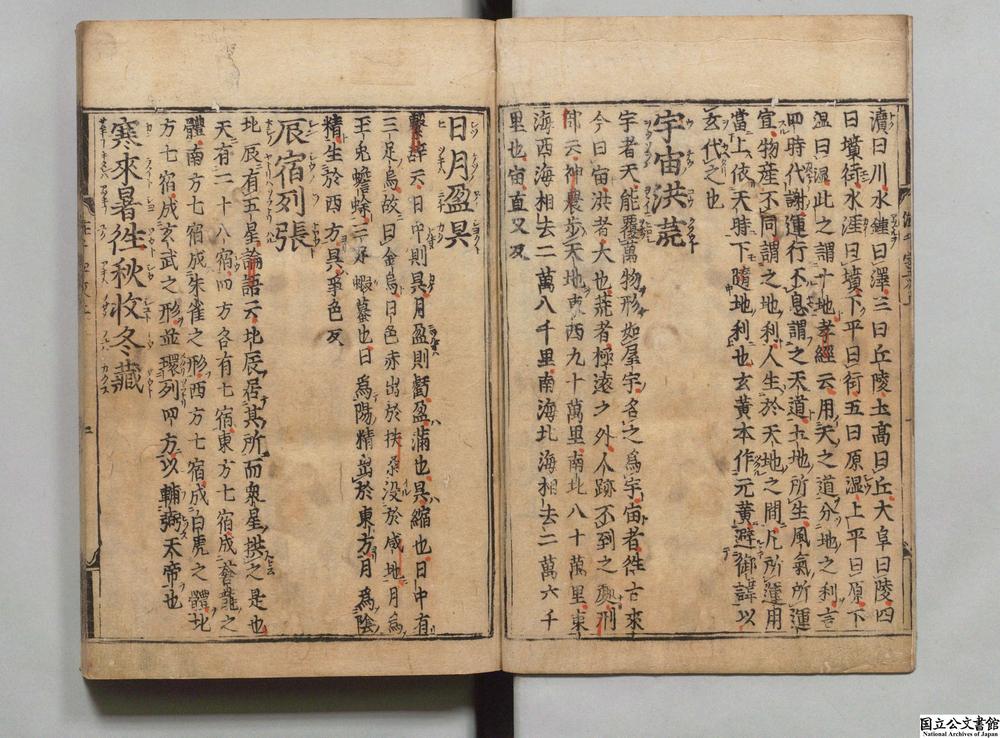 瀆曰川水鍾曰澤三曰丘陵土高曰丘大阜曰陵四
曰墳衍水涯曰墳下平曰衍五曰原濕上平曰原下
濕曰濕此之謂十地孝經云用天之道分地之利言
四時代謝運行不息謂之天道土地所生風氣所運
宜物産不同謂之地利人生於天地之間凡所運用
當上依天時下隨地利也玄黃本作元黃避御諱以
玄代之也
宇宙洪荒
宇者天能覆萬物形如屋宇名之爲宇宙者徃古來
今曰宙洪者大也荒者極遠之外人跡不到之處刑
云神農步天地東西九十萬里南北八十萬里東
海西海相去二萬八千里南海北海相去二萬六千
里也宙直又反
日月盈昃
繫辭云日中則昃月盈則虧盈滿也昃縮也日中有
三足烏故曰金烏日色赤出於扶桑没於咸地月爲
玉兎蟾蜍三好蝦蟇也日爲陽精出於東方月爲陰
精生於西方昃爭色反
辰宿列張
北辰有五星論語云北辰居其所而衆星拱之是也
天有二十八宿四方各有七宿東方七宿成蒼龍之
體南方七宿成朱雀之形西方七宿成白虎之體北
方七宿成玄武之形並環列四方以輔弼天帝也
寒來暑徃秋收冬藏
国立公文書館
National Archives of Japan